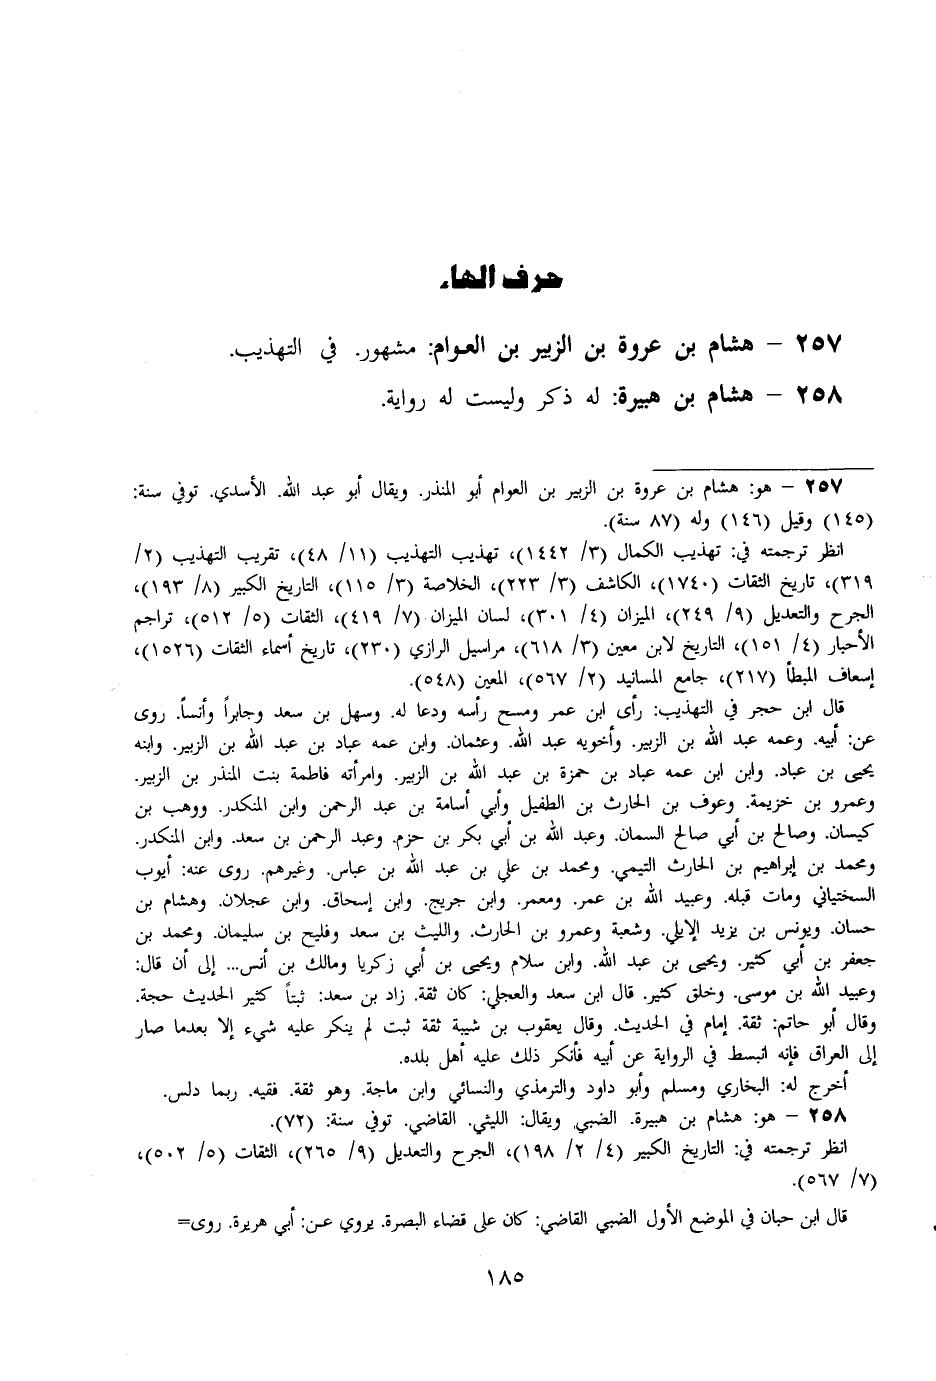 حرف الهاء
٢٥٧ – هشام بن عروة بن الزبير بن العوام: مشهور. في التهذيب.
٢٥٨ – هشام بن هبيرة: له ذكر وليست له رواية.
٢٥٧ – هو: هشام بن عروة بن الزبير بن العوام أبو المنذر. ويقال أبو عبد الله. الأسدي. توفي سنة:
(١٤٥) وقيل (١٤٦) وله (٨٧ سنة).
انظر ترجمته في: تهذيب الكمال (٣/ ١٤٤٢)، تهذيب التهذيب (١١/ ٤٨)، تقريب التهذيب (٢/
٣١٩)، تاريخ الثقات (١٧٤٠)، الكاشف (٣/ ٢٢٣)، الخلاصة (٣/ ١١٥)، التاريخ الكبير (٨/ ١٩٣)،
الجرح والتعديل (٩/ ٢٤٩)، الميزان (٤/ ٣٠١)، لسان الميزان (٧/ ٤١٩)، الثقات (٥/ ٥١٢)، تراجم
الأحبار (٤/ ١٥١)، التاريخ لابن معين (٣/ ٦١٨)، مراسيل الرازي (٢٣٠)، تاريخ أسماء الثقات (١٥٢٦)،
إسعاف المبطأ (٢١٧)، جامع المسانيد (٢/ ٥٦٧)، المعين (٥٤٨).
قال ابن حجر في التهذيب: رأى ابن عمر ومسح رأسه ودعا له. وسهل بن سعد وجابراً وأنساً. روى
عن: أبيه. وعمه عبد الله بن الزبير. وأخويه عبد الله. وعثمان. وابن عمه عباد بن عبد الله بن الزبير. وابنه
يحيى بن عباد. وابن ابن عمه عباد بن حمزة بن عبد الله بن الزبير. وامرأته فاطمة بنت المنذر بن الزبير.
وعمرو بن خزيمة. وعوف بن الحارث بن الطفيل وأبي أسامة بن عبد الرحمن وابن المنكدر. ووهب بن
كيسان. وصالح بن أبي صالح السمان. وعبد الله بن أبي بكر بن حزم. وعبد الرحمن بن سعد. وابن المنكدر.
ومحمد بن إبراهيم بن الحارث التيمي. ومحمد بن علي بن عبد الله بن عباس. وغيرهم. روى عنه: أيوب
السختياني ومات قبله. وعبيد الله بن عمر. ومعمر. وابن جريج. وابن إسحاق. وابن عجلان. وهشام بن
حسان. ويونس بن يزيد الإيلي. وشعبة وعمرو بن الحارث. والليث بن سعد وفليح بن سليمان. ومحمد بن
جعفر بن أبي كثير. ويحيى بن عبد الله. وابن سلام ويحيى بن أبي زكريا ومالك بن أنس... إلى أن قال:
وعبيد الله بن موسى. وخلق كثير. قال ابن سعد والعجلي: كان ثقة. زاد بن سعد: ثبتاً كثير الحديث حجة.
وقال أبو حاتم: ثقة. إمام في الحديث. وقال يعقوب بن شيبة ثقة ثبت لم ينكر عليه شيء إلا بعدما صار
إلى العراق فإنه انبسط في الرواية عن أبيه فأنكر ذلك عليه أهل بلده.
أخرج له: البخاري ومسلم وأبو داود والترمذي والنسائي وابن ماجة. وهو ثقة. فقيه. ربما دلس.
٢٥٨ – هو: هشام بن هبيرة. الضبي ويقال: الليثي. القاضي. توفي سنة: (٧٢).
انظر ترجمته في: التاريخ الكبير (٤/ ٢/ ١٩٨)، الجرح والتعديل (٩/ ٢٦٥)، الثقات (٥/ ٥٠٢)،
(٧/ ٥٦٧).
قال ابن حبان في الموضع الأول الضبي القاضي: كان على قضاء البصرة. يروي عن: أبي هريرة. روى=
١٨٥